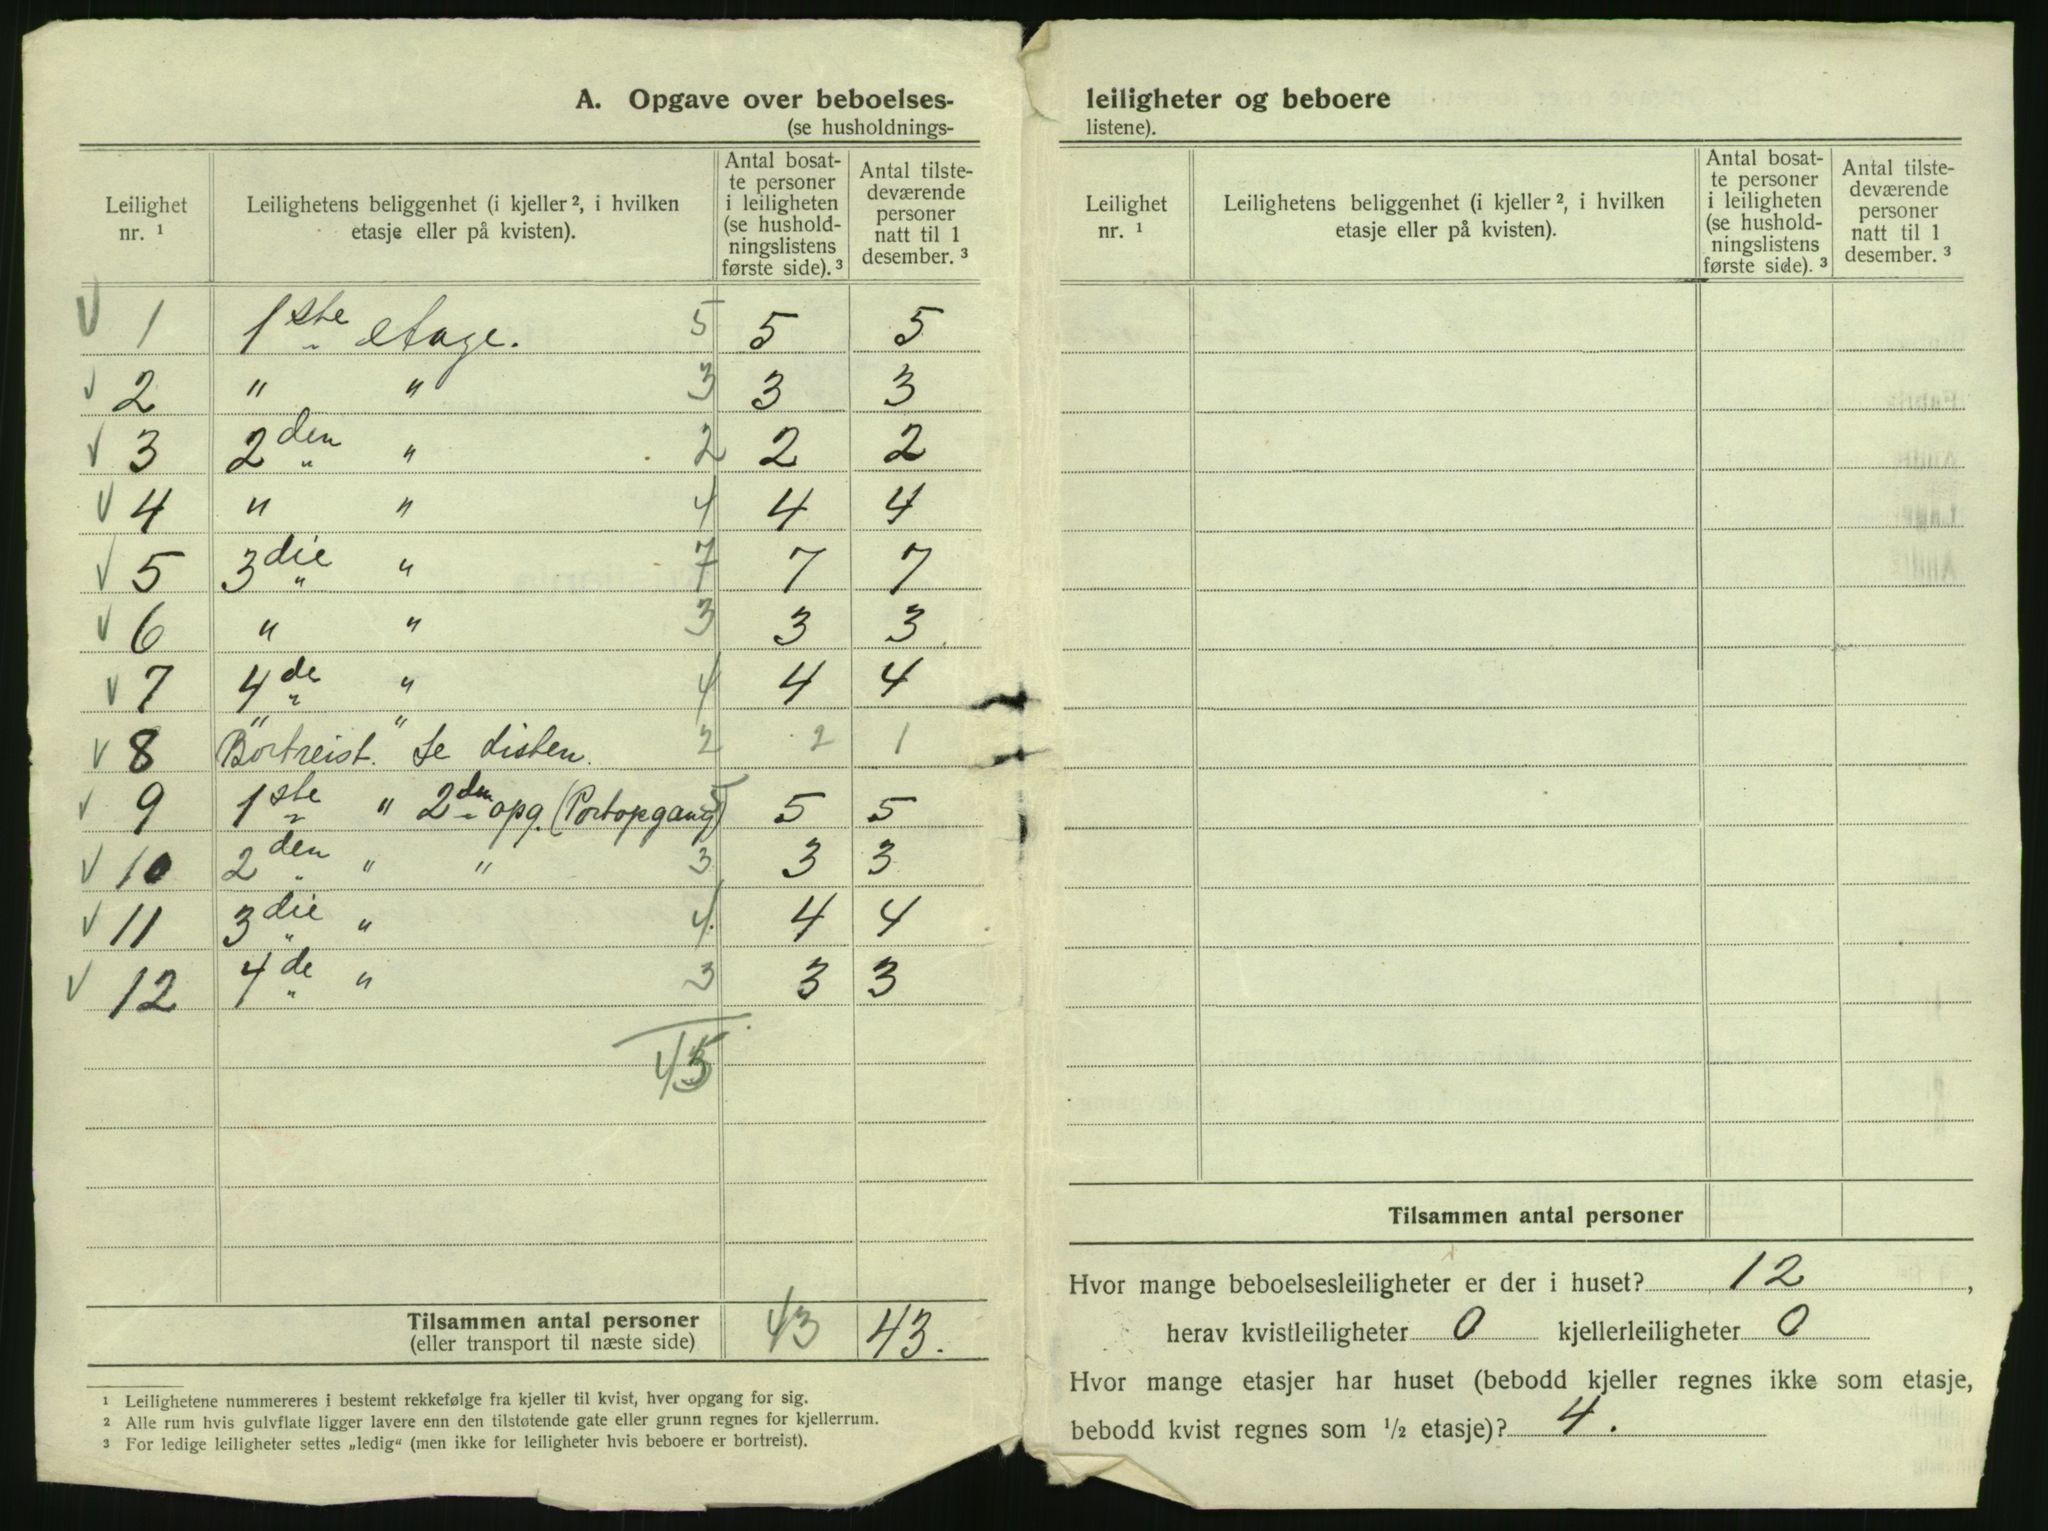 A. Opgave over beboelses-
(se husholdnings-
Leilighet nr. ¹ | Leilighetens beliggenhet (i kjeller ², i hvilken etasje eller på kvisten). | Antal bosat-te personer i leiligheten (se hushold-ningslistens første side). ³ | Antal tilste-deværende personer natt til 1 desember. ³
V 1 1ste etage. 5 5 5
V 2 " " 3 3 3
V 3 2den " 2 2 2
V 4 " " 4 4 4
V 5 3die " 7 7 7
V 6 " " 3 3 3
V 7 4de " 4 4 4
" "
V 8 Bortreist. Se listen. 2 2 1
V 9 1ste " 2den opg. (Portopgang) 5 5 5
V 10 2den " " 3 3 3
V 11 3die " 4 4 4
V 12 4de " 3 3 3
45
Tilsammen antal personer 43 43.
(eller transport til næste side)
¹ Leilighetene nummereres i bestemt rekkefølge fra kjeller til kvist, hver opgang for sig.
² Alle rum hvis gulvflate ligger lavere enn den tilstøtende gate eller grunn regnes for kjellerrum.
³ For ledige leiligheter settes „ledig“ (men ikke for leiligheter hvis beboere er bortreist).
leiligheter og beboere
listene).
Leilighet nr. ¹ | Leilighetens beliggenhet (i kjeller ², i hvilken etasje eller på kvisten). | Antal bosat-te personer i leiligheten (se hushold-ningslistens første side). ³ | Antal tilste-deværende personer natt til 1 desember. ³
Tilsammen antal personer
Hvor mange beboelsesleiligheter er der i huset? 12,
herav kvistleiligheter 0 kjellerleiligheter 0
Hvor mange etasjer har huset (bebodd kjeller regnes ikke som etasje,
bebodd kvist regnes som ½ etasje)? 4.